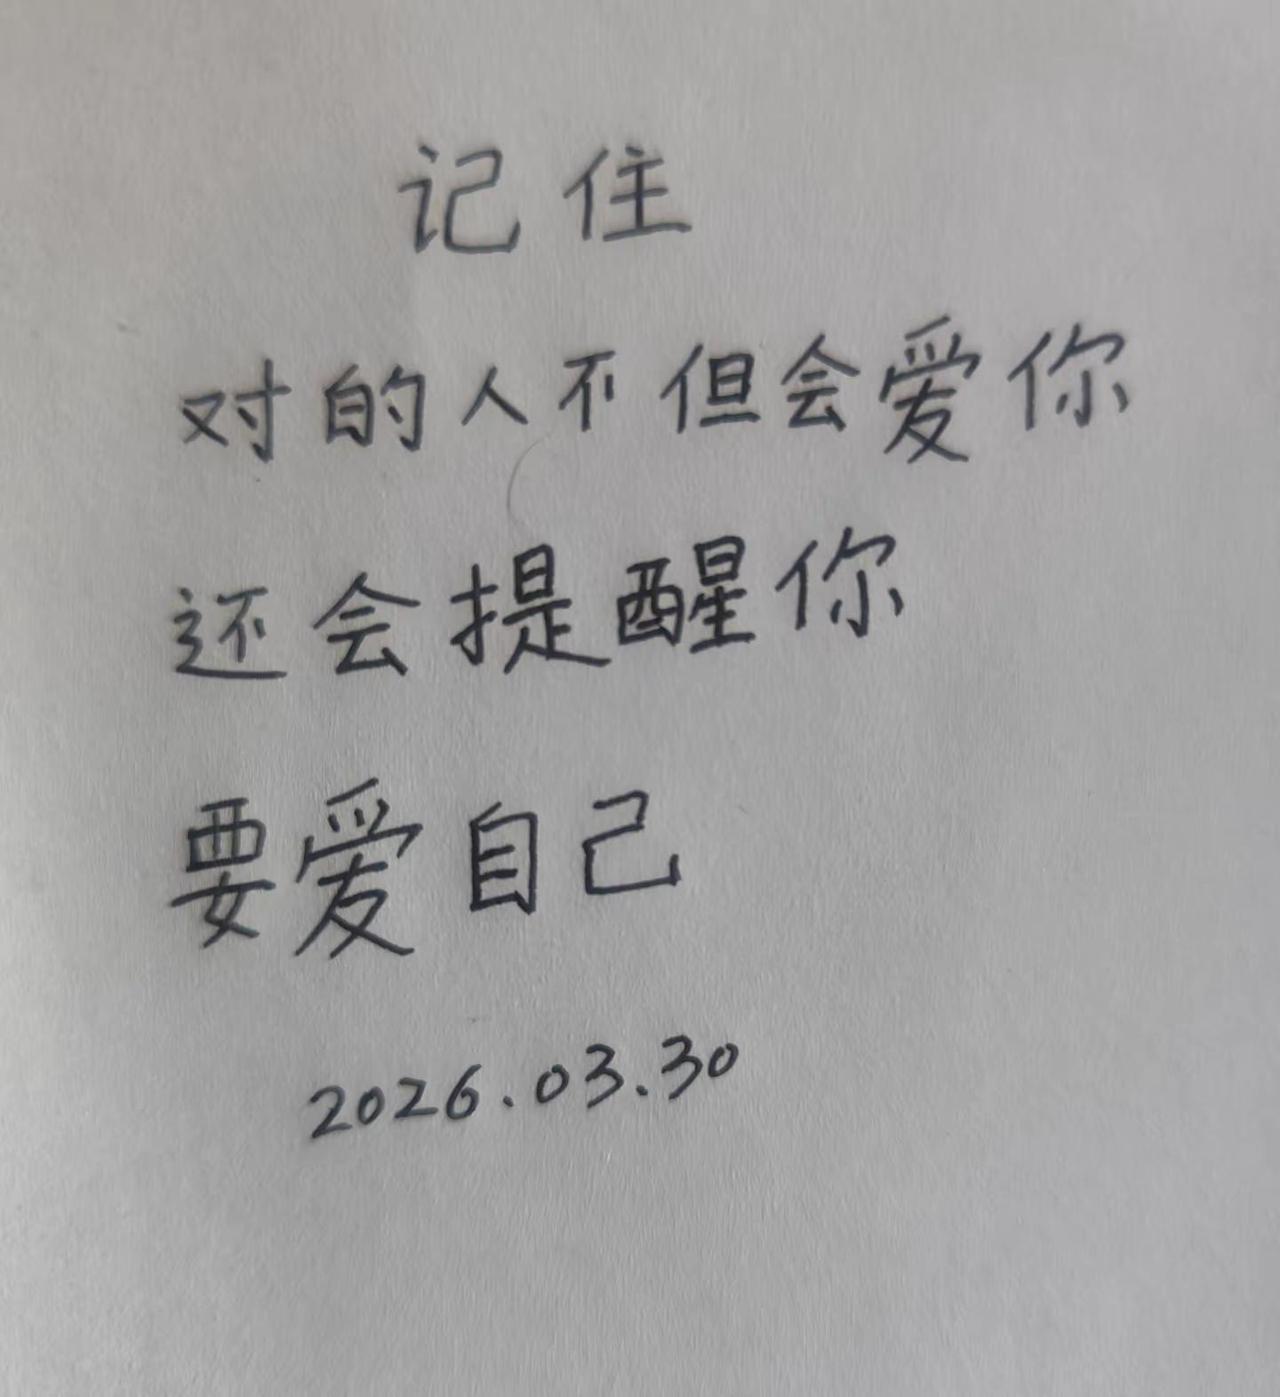 记住
对的人不但会爱你
还会提醒你
要爱自己
2026.03.30